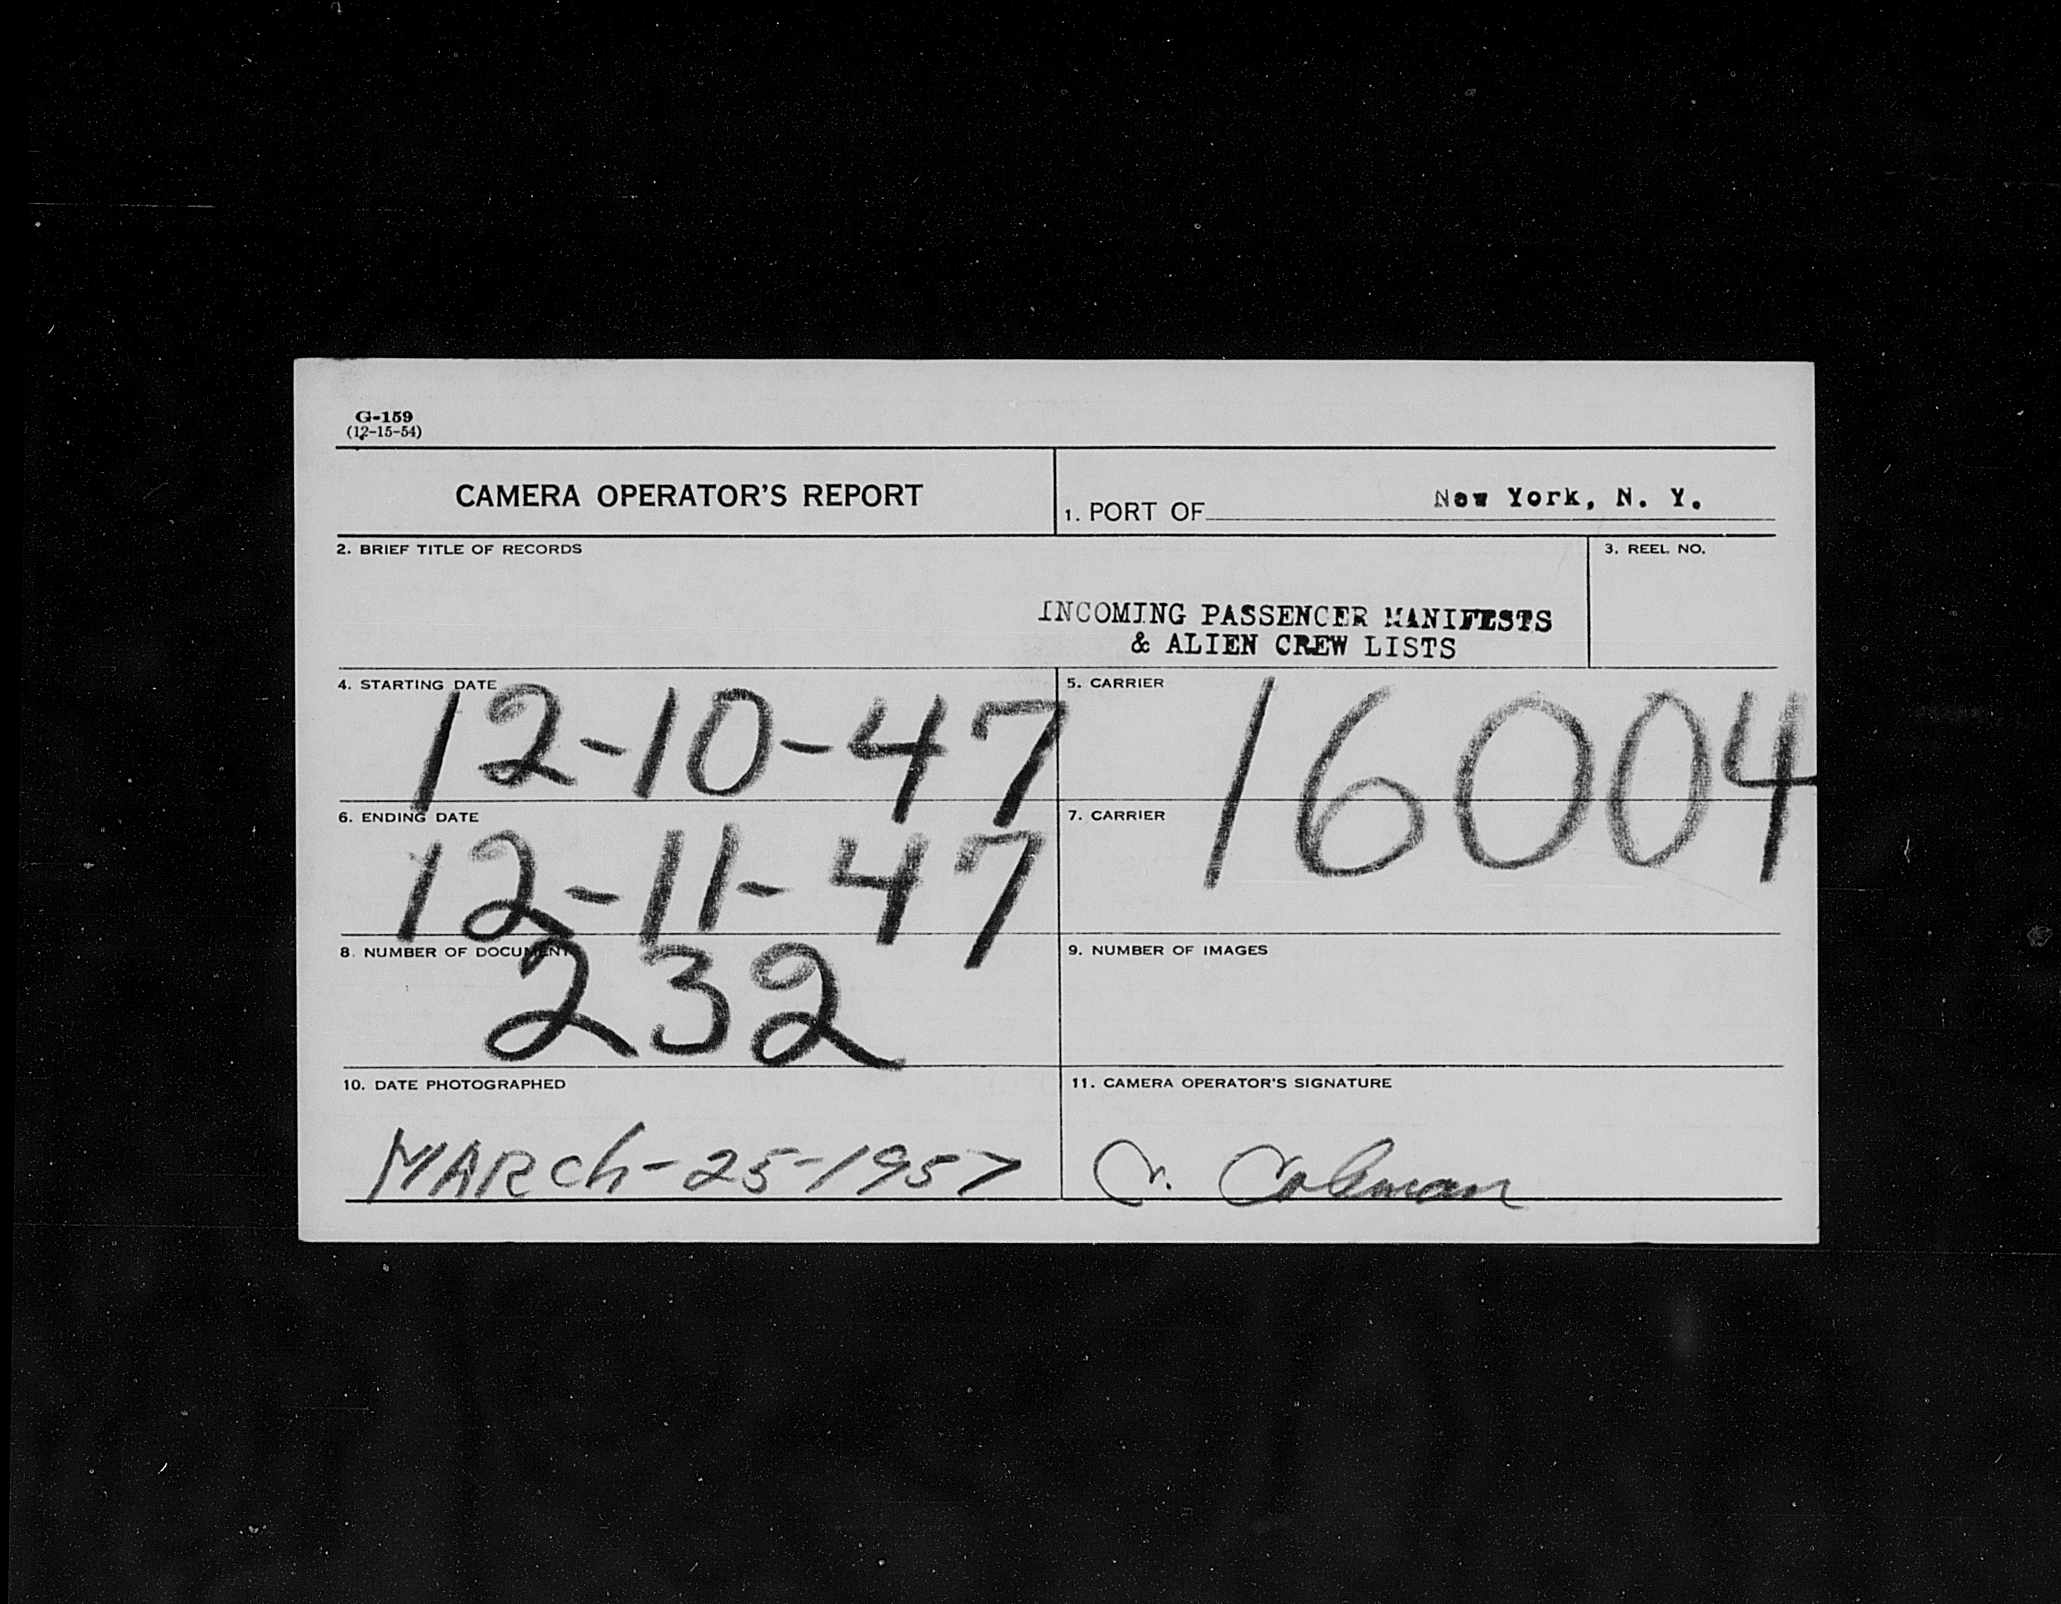 G-159
(12-15-54)
CAMERA OPERATOR'S REPORT
1. PORT OF New York, N. Y.
2. BRIEF TITLE OF RECORDS
3. REEL NO.
INCOMING PASSENGER MANIFESTS
& ALIEN CREW LISTS
4. STARTING DATE
12-10-47
5. CARRIER
16004
6. ENDING DATE
12-11-47
7. CARRIER
8. NUMBER OF DOCUMENTS
232
9. NUMBER OF IMAGES
10. DATE PHOTOGRAPHED
MARch-25-1957
11. CAMERA OPERATOR'S SIGNATURE
C. Coleman